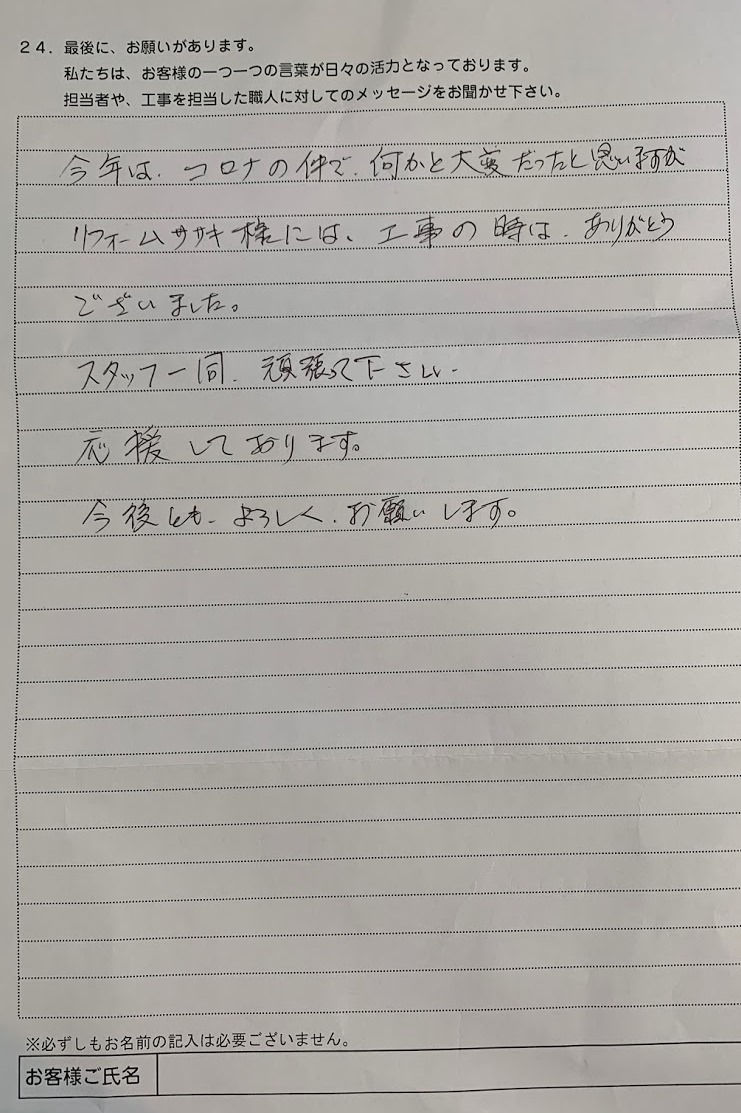 24．最後に、お願いがあります。
私たちは、お客様の一つ一つの言葉が日々の活力となっております。
担当者や、工事を担当した職人に対してのメッセージをお聞かせ下さい。
今年は、コロナの件で、何かと大変だったと思いますが
リフォームササキ様には、工事の時は、ありがとう
ございました。
スタッフ一同、頑張って下さい。
応援しております。
今後とも、よろしく、お願いします。
※必ずしもお名前の記入は必要ございません。
お客様ご氏名